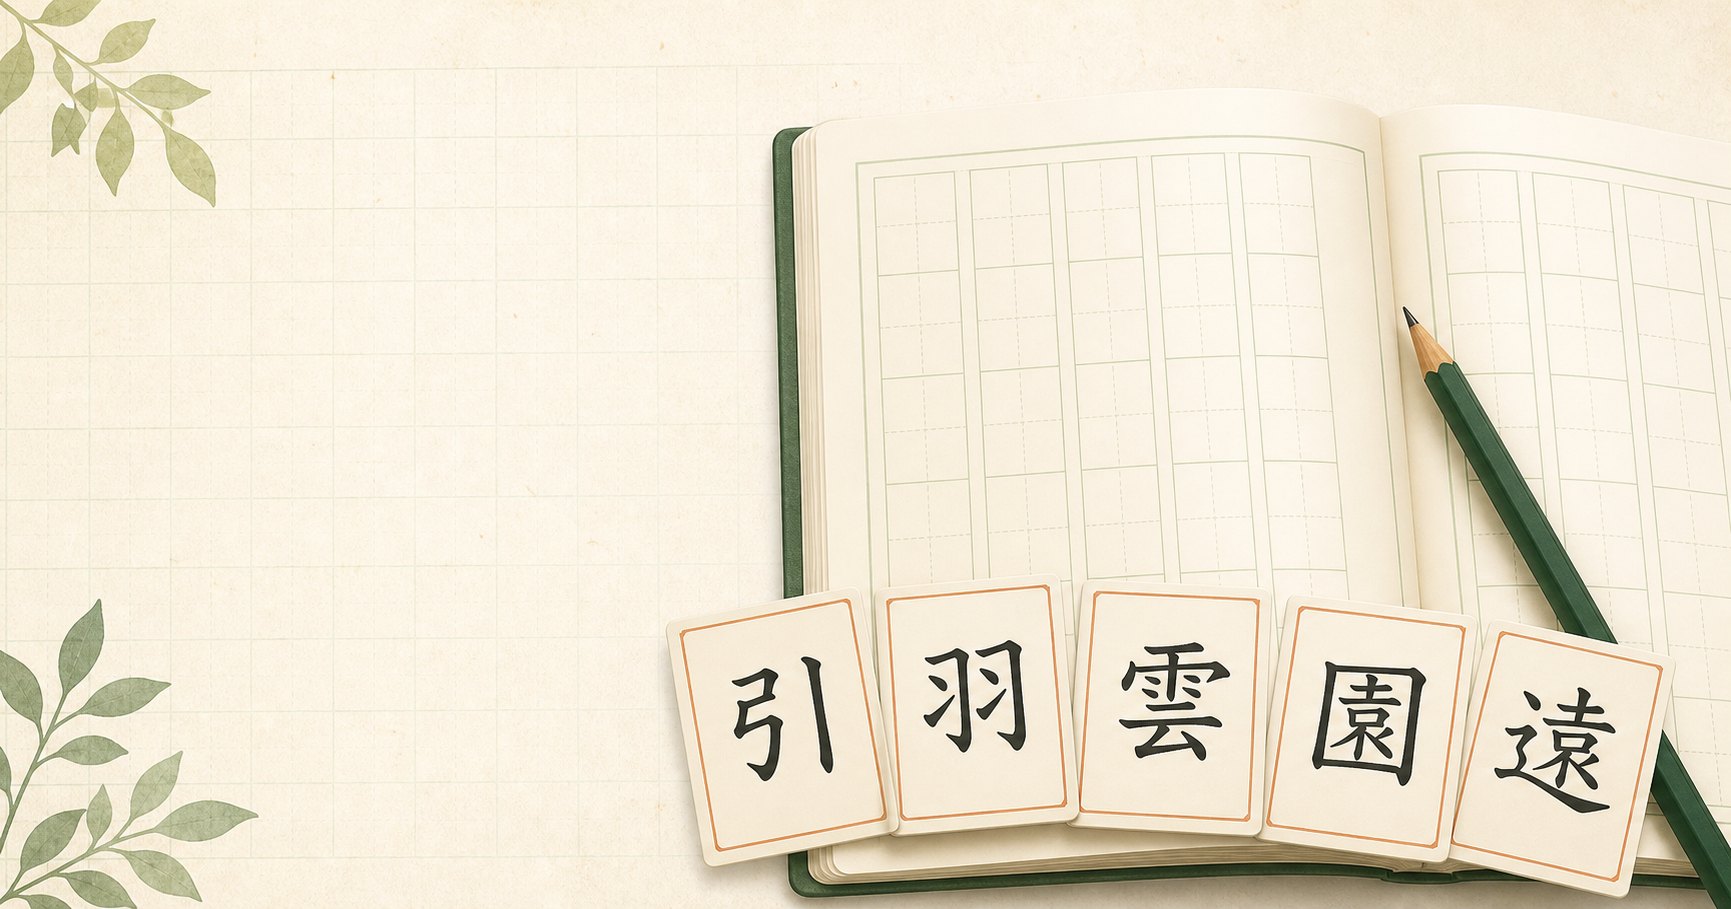 引
羽
雲
園
遠